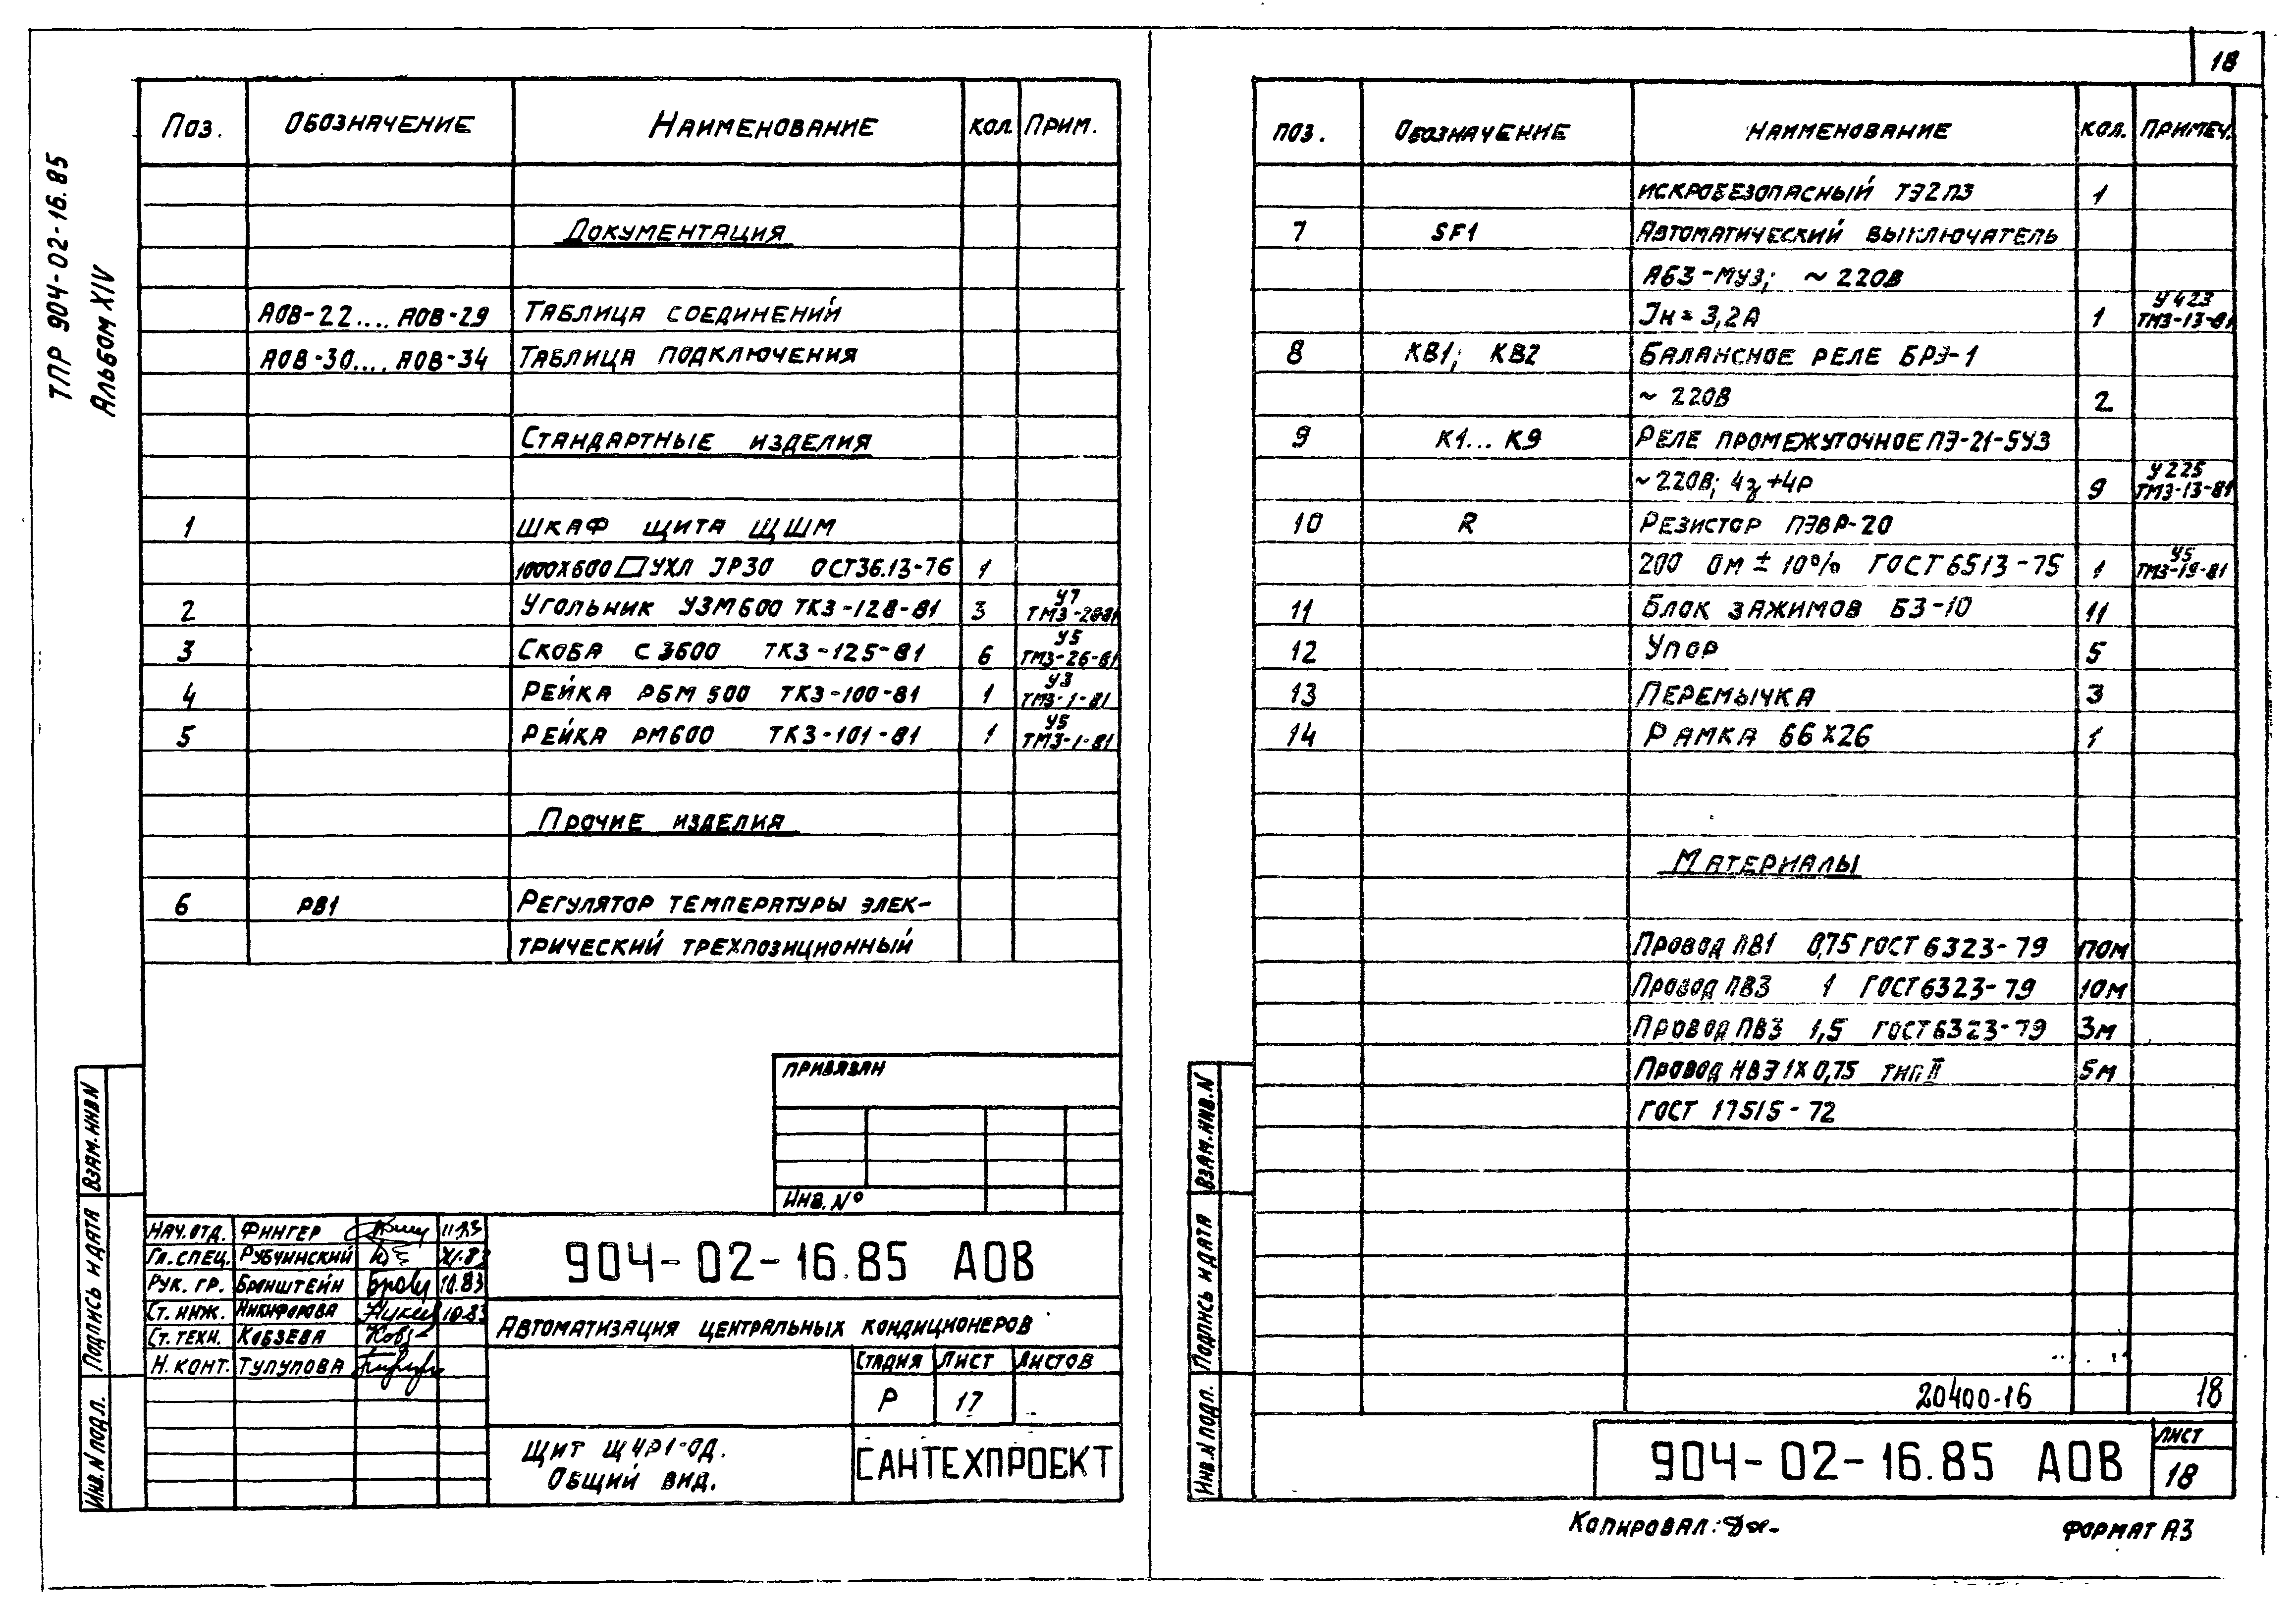 ТПР 904-02-16.85
Альбом XIV
Поз. Обозначение Наименование Кол Прим.
Документация
АОВ-22.... АОВ-29 Таблица соединений
АОВ-30.... АОВ-34 Таблица подключения
Стандартные изделия
1 Шкаф щита ЩШМ
1000х600 УХЛ IP30 ОСТ36.13-76 1
2 Угольник УЗМ600 ТКЗ-128-81 3 У7
3 Скоба С3600 ТКЗ-125-81 6 У5 ТМЗ-26-81
4 Рейка РБМ 500 ТКЗ-100-81 1 У3 ТМЗ-1-81
5 Рейка РМ600 ТКЗ-101-81 1 У5 ТМЗ-1-81
Прочие изделия
6 РВ1 Регулятор температуры элек-
трический трехпозиционный
Привязан
Инв. №
Нач. отд. Фингер 11.83
Гл. спец. Рубчинский XI.83
Рук. гр. Бронштейн 10.83
Ст. инж. Никифорова 10.83
Ст. техн. Кобзева
Н. конт. Тулупова
904-02-16.85 АОВ
Автоматизация центральных кондиционеров
Стадия Лист Листов
Р 17
Щит ЩУР1-ОД.
Общий вид.
САНТЕХПРОЕКТ
Инв. N подл. Подпись и дата Взам. инв N
18
поз. Обозначение Наименование кол. Примеч.
искробезопасный ТЭ2П3 1
7 SF1 Автоматический выключатель
А63-МУ3; ~ 220В
Iн = 3,2А 1 У423 ТМЗ-13-81
8 КВ1; КВ2 Балансное реле БРЭ-1
~ 220В 2
9 К1... К9 Реле промежуточное ПЭ-21-5У3
~220В; 4з+4р 9 У225 ТМЗ-13-81
10 R Резистор ПЭВР-20
200 Ом ± 10% ГОСТ 6513-75 1 У5 ТМЗ-19-81
11 Блок зажимов БЗ-10 11
12 Упор 5
13 Перемычка 3
14 Рамка 66х26 1
Материалы
Провод ПВ1 0,75 ГОСТ 6323-79 110м
Провод ПВ3 1 ГОСТ 6323-79 10м
Провод ПВ3 1,5 ГОСТ 6323-79 3м
Провод НВЭ 1х0,75 тип II 5м
ГОСТ 17515-72
20400-16 18
904-02-16.85 АОВ
Лист
18
Инв. N подл. Подпись и дата Взам. инв. N
Копировал:
Формат А3